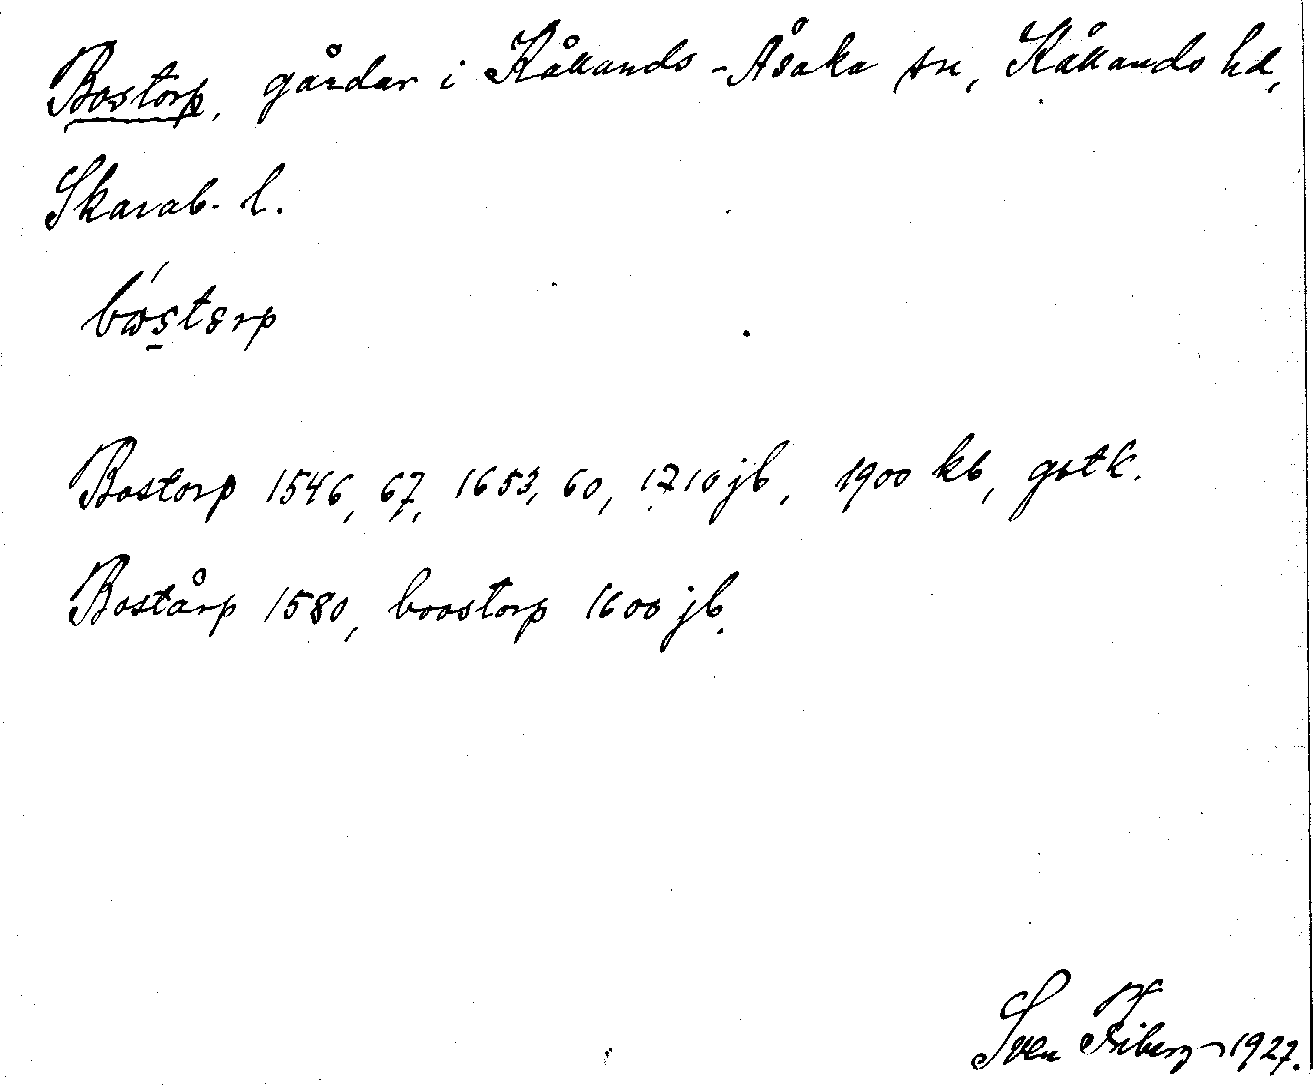 Bostorp, gårdar i Kåkands-Åsaka sn, Kåkands hd,
Skarab. l.
bωstørp
Bostorp 1546, 67, 1653, 60, 1710 jb, 1900 kb, gstk.
Bostårp 1580, boostorp 1600 jb.
Sven Friberg 1927.